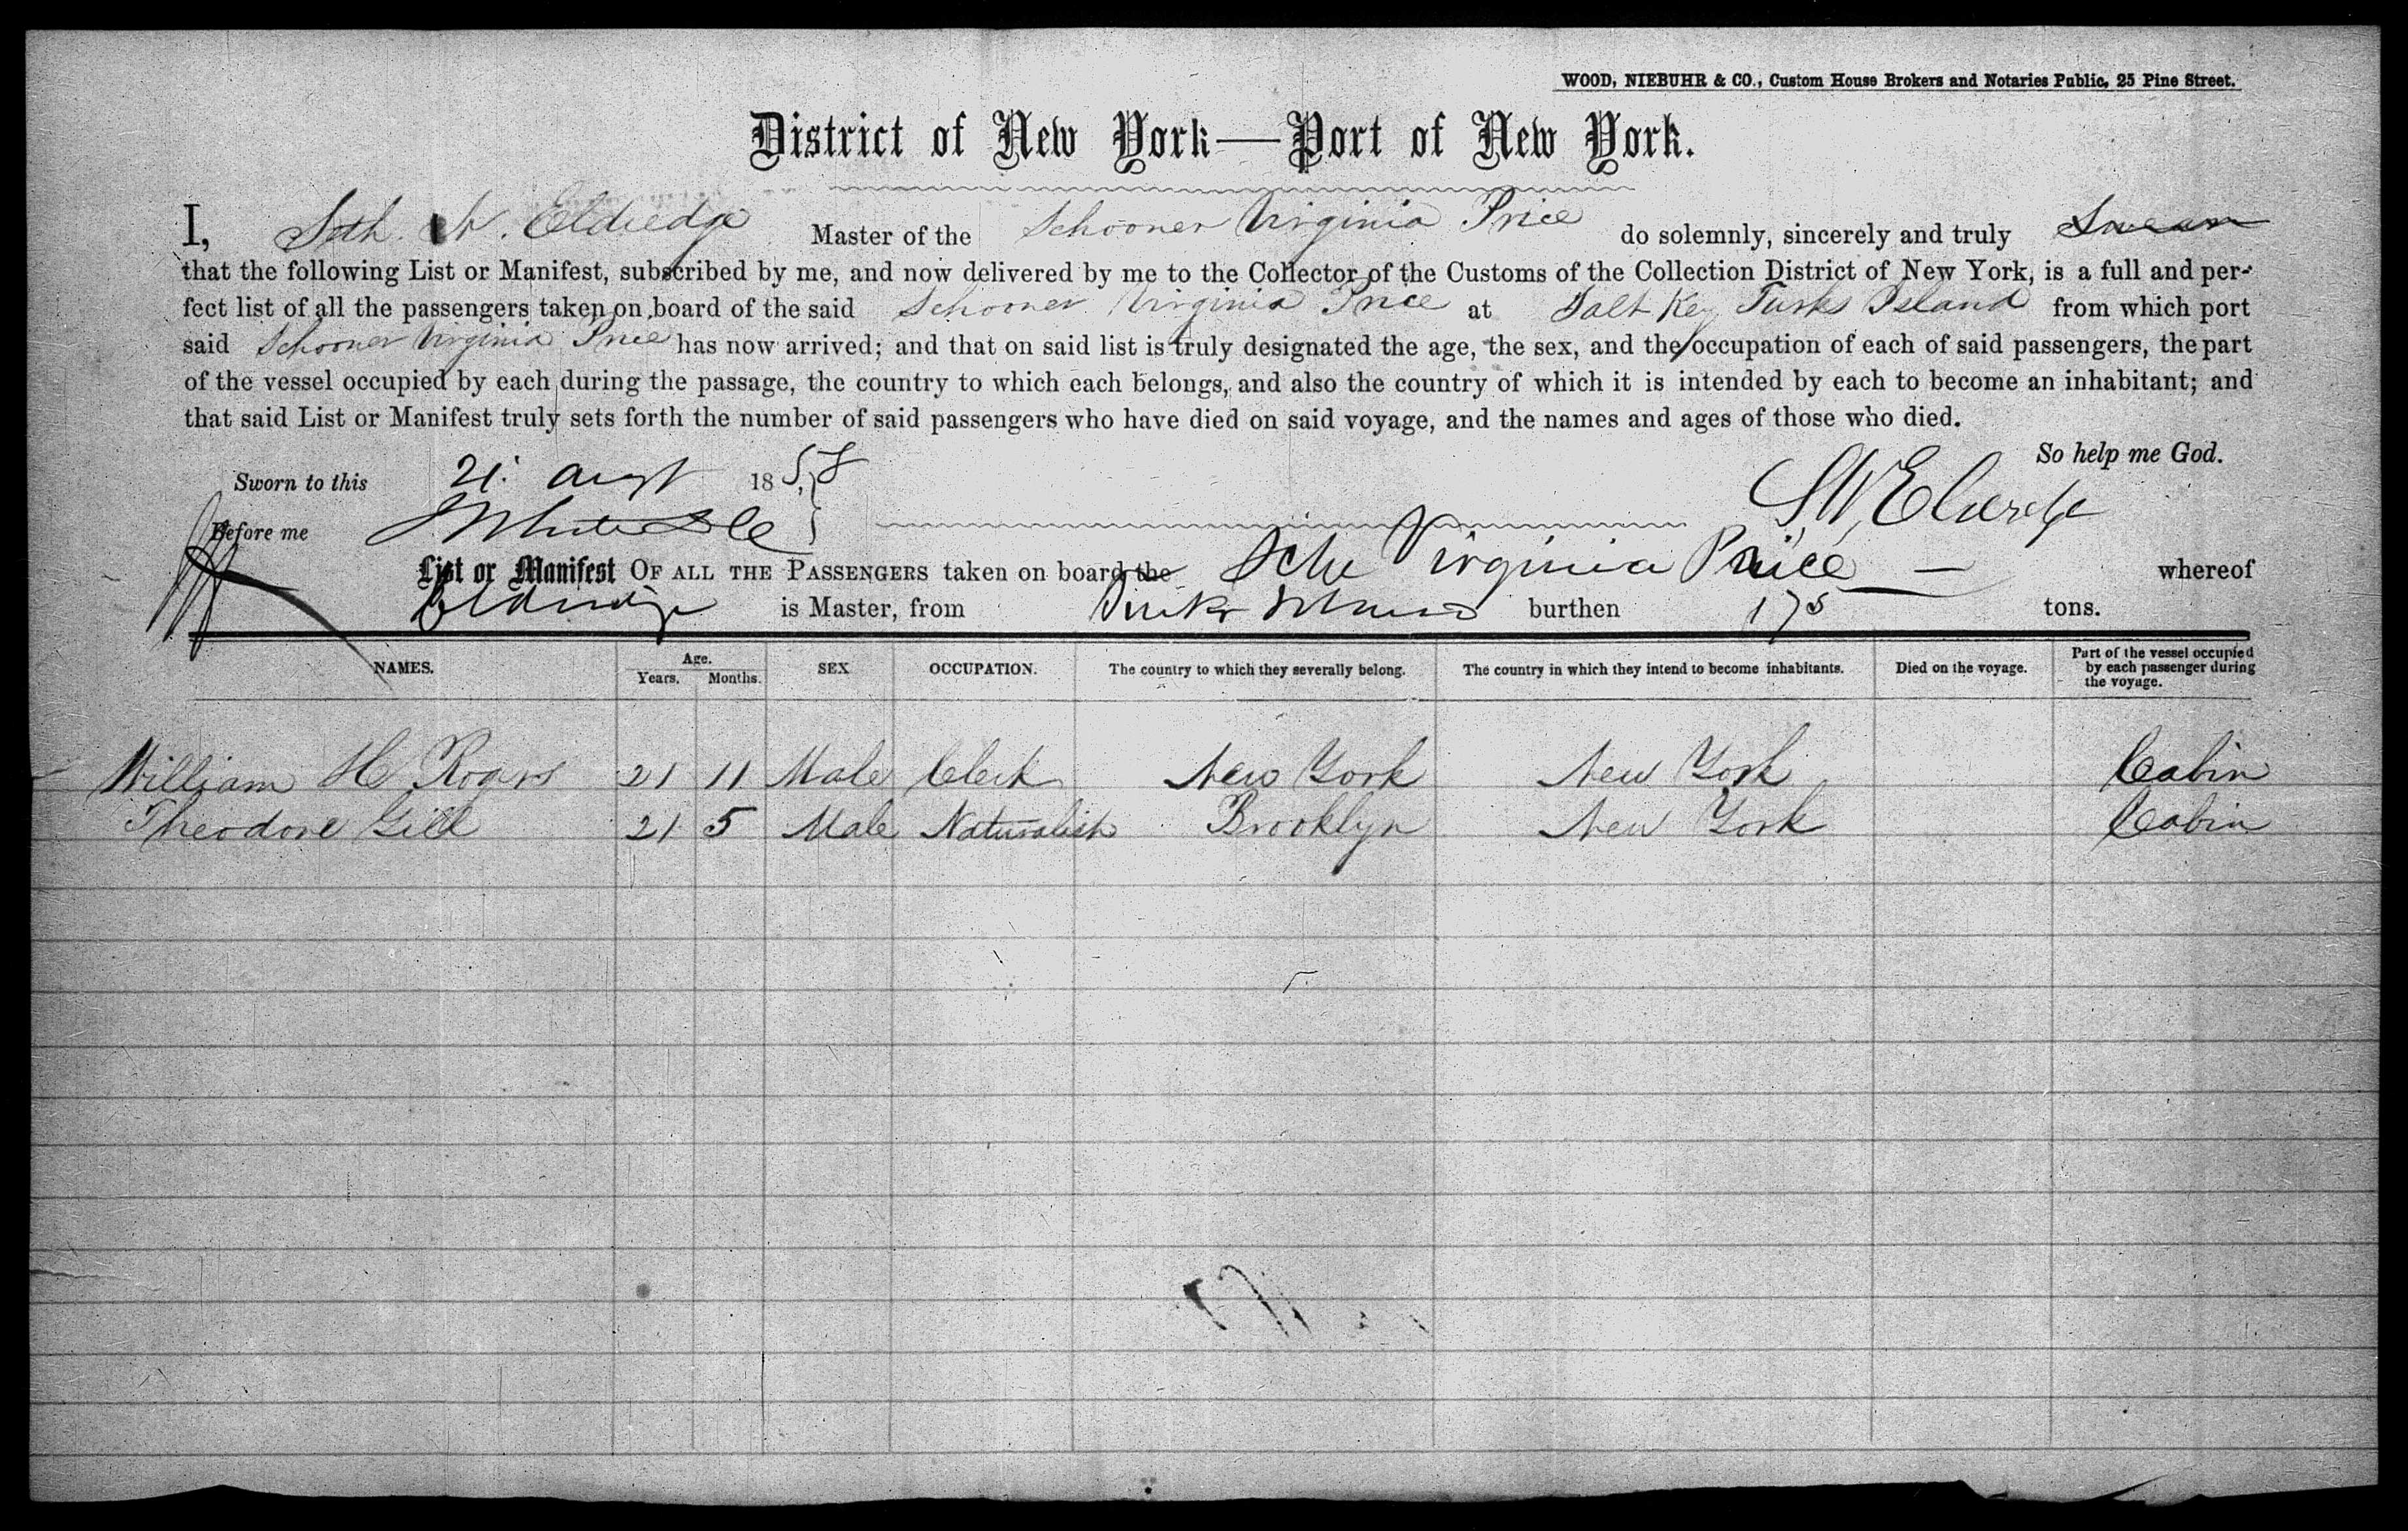 WOOD, NIEBUHR & CO., Custom House Brokers and Notaries Public, 25 Pine Street.
District of New York—Port of New York.
I, Seth W. Eldredge Master of the Schooner Virginia Price do solemnly, sincerely and truly Swear
that the following List or Manifest, subscribed by me, and now delivered by me to the Collector of the Customs of the Collection District of New York, is a full and per-
fect list of all the passengers taken on board of the said Schooner Virginia Price at Salt Key Turks Island from which port
said Schooner Virginia Price has now arrived; and that on said list is truly designated the age, the sex, and the occupation of each of said passengers, the part
of the vessel occupied by each during the passage, the country to which each belongs, and also the country of which it is intended by each to become an inhabitant; and
that said List or Manifest truly sets forth the number of said passengers who have died on said voyage, and the names and ages of those who died.
So help me God.
Sworn to this 21. augt 1858
S W Eldredge
Before me
List or Manifest OF ALL THE PASSENGERS taken on board the Schr Virginia Price whereof
Eldredge is Master, from Turks Island burthen 175 tons.
NAMES. Age. Years. Months. SEX OCCUPATION. The country to which they severally belong. The country in which they intend to become inhabitants. Died on the voyage. Part of the vessel occupied by each passenger during the voyage.
William H Rogers 21 11 Male Clerk New York New York Cabin
Theodore Gill 21 5 Male Naturalist Brooklyn New York Cabin